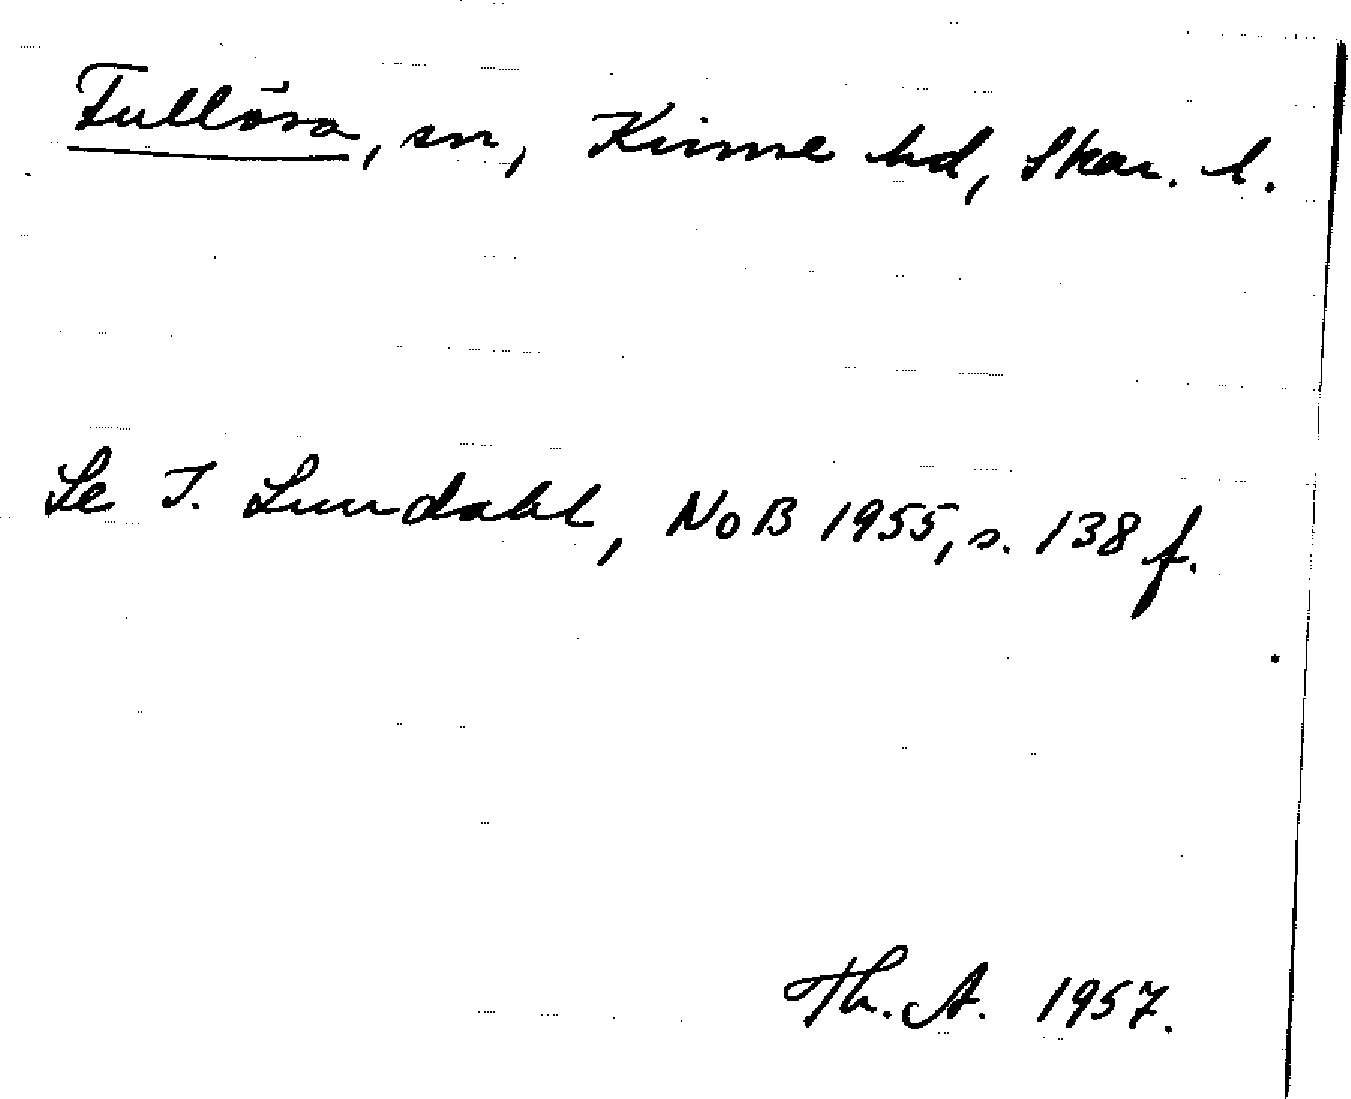 Fullösa, sn, Kinne hd, Skar. l.
Se I. Lundahl, NoB 1955, s. 138 f.
Th. A. 1957.